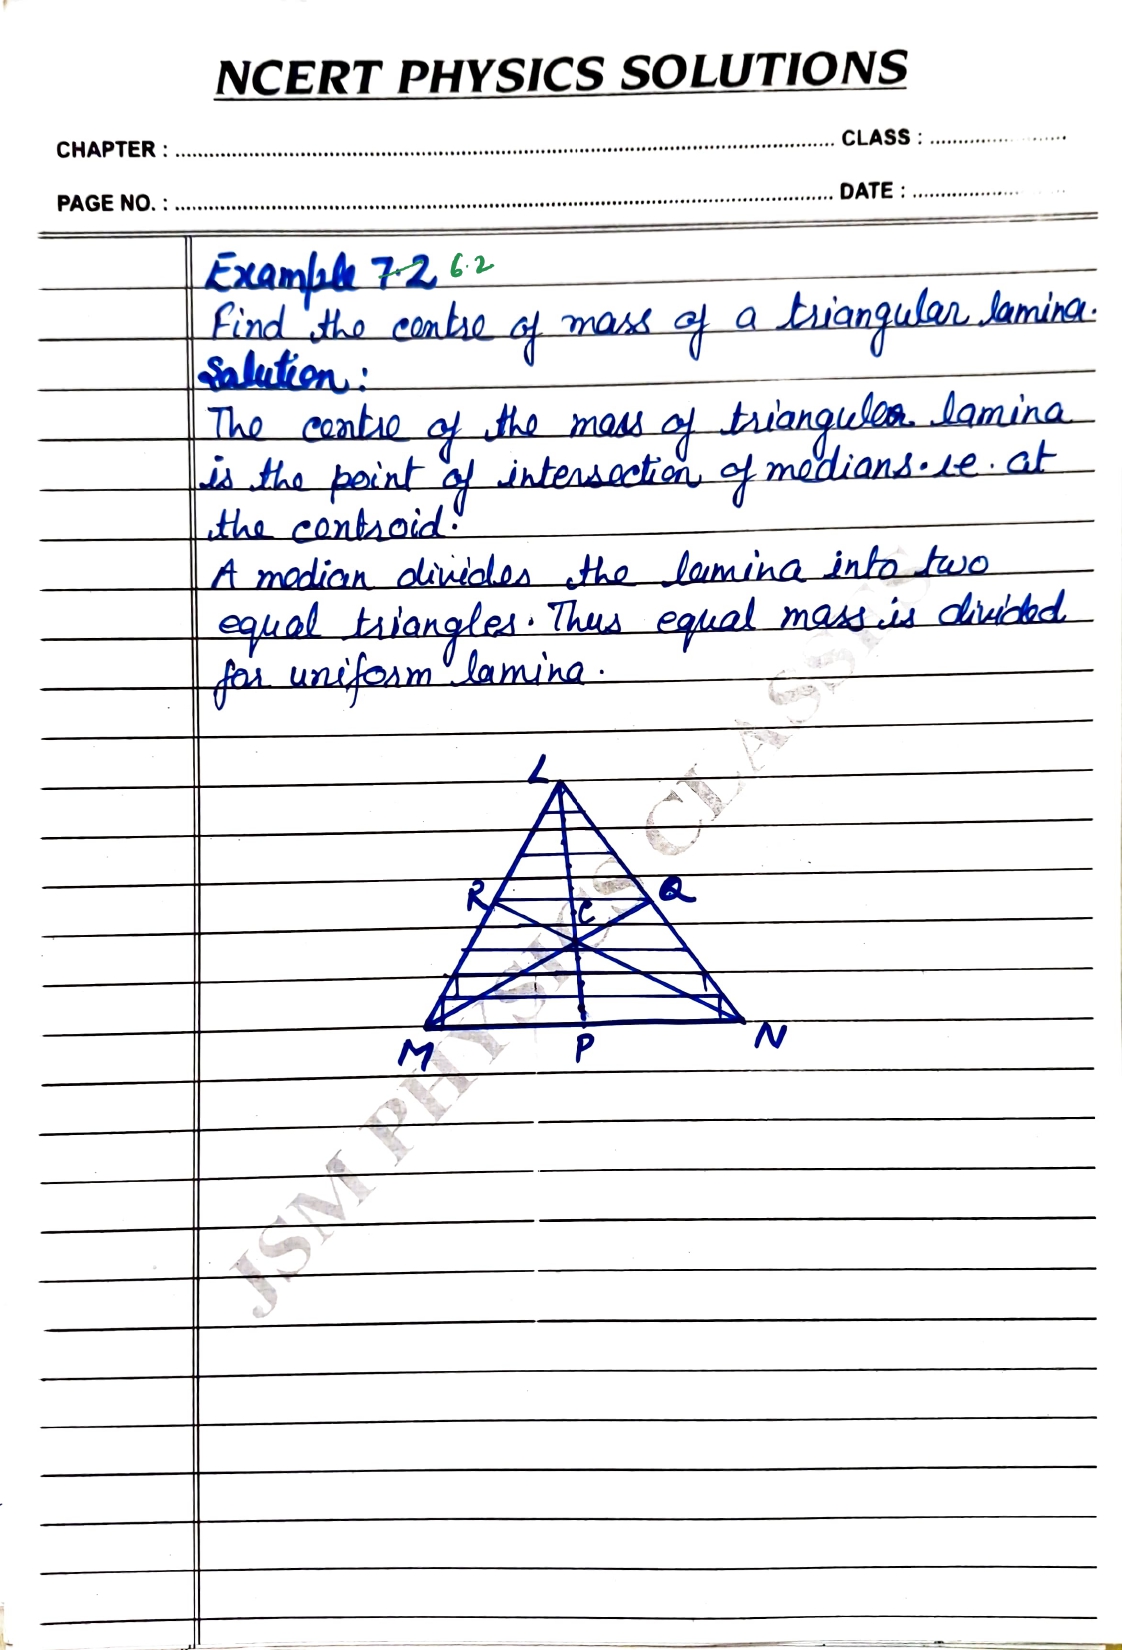 NCERT PHYSICS SOLUTIONS
CHAPTER : ........ CLASS : ........
PAGE NO. : ........ DATE : ........
Example 7.2 6.2
Find the centre of mass of a triangular lamina.
Solution:
The centre of the mass of triangular lamina
is the point of intersection of medians. i.e. at
the centroid.
A median divides the lamina into two
equal triangles. Thus equal mass is divided
for uniform lamina.
L
R Q
C
M P N
JSM PHYSICS CLASSES